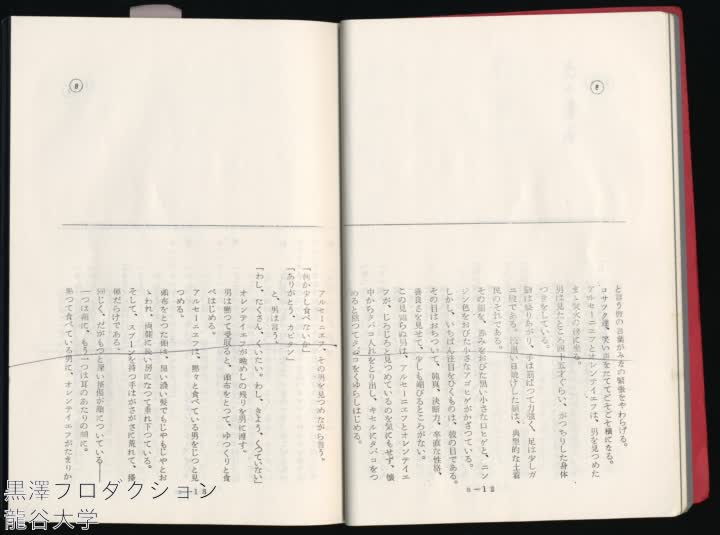 8
と言う彼の言葉がみなの緊張をやわらげる。
コサツク達、笑い声をたててごそごそ横になる。
アルセーニエフとオレンテイエフは、男を見つめた
まゝ焚火の傍に坐る。
男は見たところ四十五才ぐらい、がつちりした身体
つきをしている。
胸は盛りあがり、手は筋ばつて力強く、足は少しガ
ニ股である。浅黒い日焼けした顔は、典型的な土着
民のそれである。
その顔を、赤みをおびた黒い小さな口ヒゲと、ニン
ジン色をおびた小さなアゴヒゲがかざつている。
しかし、いちばん注目をひくものは、彼の目である。
その目はおちついて、純真、決断力、率直な性格、
善良さを見せて、少しも媚びるところがない。
この見知らぬ男は、アルセーニエフとオレンテイエ
フが、じろじろと見つめているのを気にもせず、懐
中からタバコ入れをとり出し、キセルにタバコをつ
めると黙つてタバコをくゆらしはじめる。
8
アルセーニエフ、その男を見つめながら言う。
「何か少し食べないか」
「ありがとう、カピタン」
と、男は言う。
「わし、たくさん、くいたい。わし、きよう、くつていない」
オレンテイエフが晩めしの残りを男に渡す。
男は黙つて受取ると、頭布をとつて、ゆつくりと食
べはじめる。
アルセーニエフは、黙々と食べている男をじつと見
つめる。
頭布をとつた頭は、黒い濃い髪でもじやもじやとお
ゝわれ、両頬に長い房になつて垂れ下つている。
そして、スプーンを持つ手はがさがさに荒れて、
傷だらけである。
同じく、だがもつと深い掻傷が顔についている――
一つは額に、もう一つは耳のあたりの頬に。
黙つて食べている男に、オレンテイエフがたまりか
黒澤プロダクション
龍谷大学